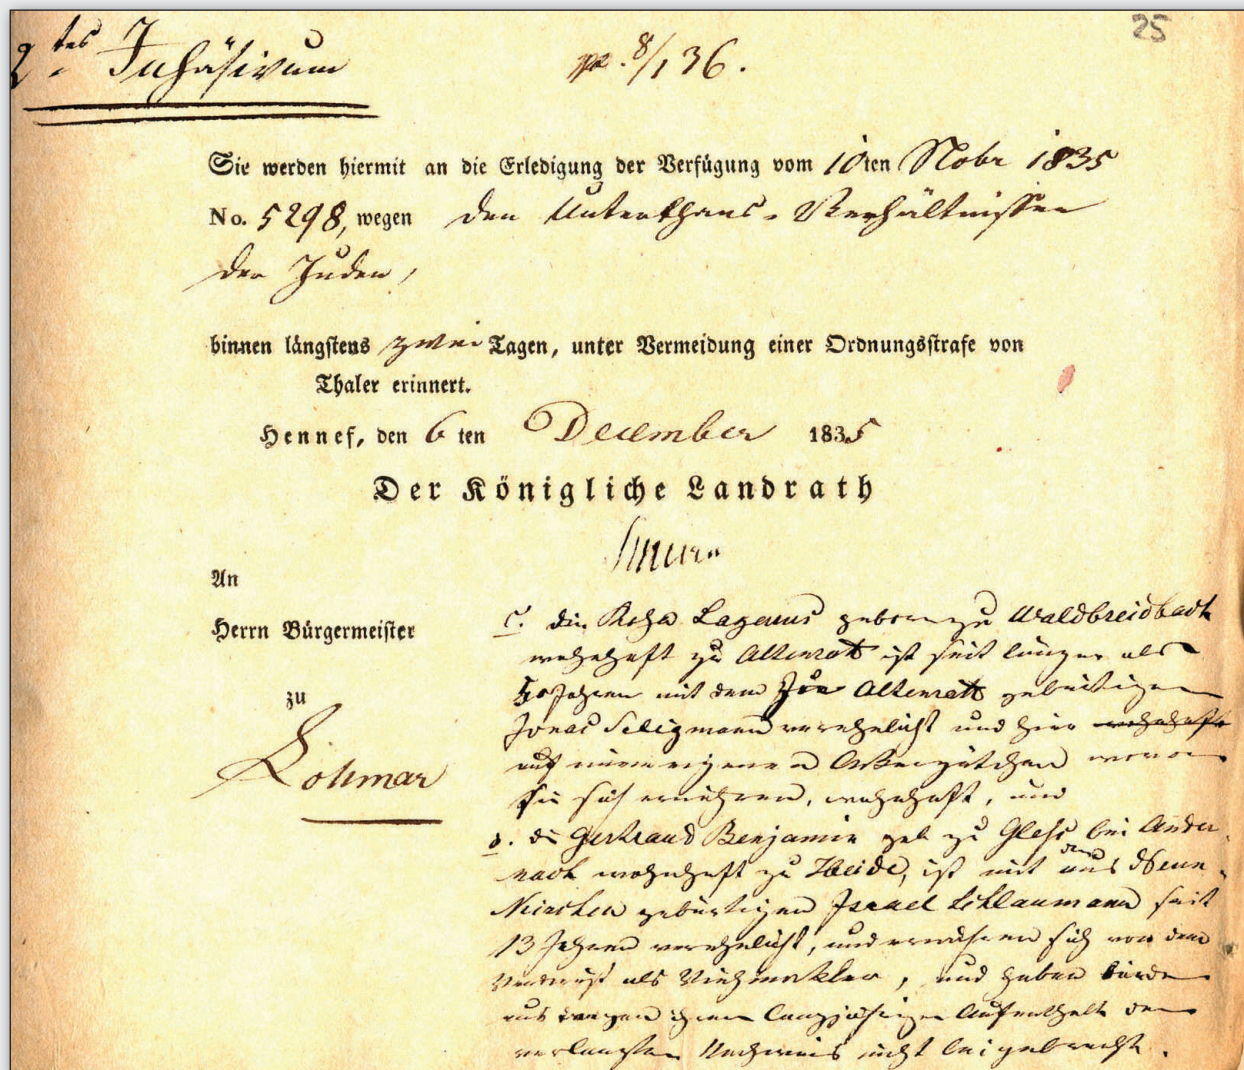 25
2tes Inhäsivum
pr. 8/1 36.
Sie werden hiermit an die Erledigung der Verfügung vom 10ten Nobr 1835
No. 5298, wegen den Unterthans-Verhältnissen
der Juden,
binnen längstens zwei Tagen, unter Vermeidung einer Ordnungsstrafe von
Thaler erinnert.
Hennef, den 6 ten December 1835
Der Königliche Landrath
An
Herrn Bürgermeister
zu
Lohmar
c. die Lazarus geboren zu Waldbreidbach
wohnhaft zu Altenrath ist seit länger als
Jahren mit dem zu Altenrath gebürtigen
Jonas Seligmann verehelicht und hier wohnhaft
auf einem eigenen Ackergütchen wovon
sie sich ernähren, wohnhaft, und
d. die Gertraud Benjamin geb zu Glees bei Ander-
nach wohnhaft zu Heide, ist mit dem aus Neun-
kirchen gebürtigen Israel Schlaumann seit
13 Jahren verehelicht, und ernähren sich von dem
Verdienst als Viehmakler, und haben beide
uns wegen ihrem langjährigen Aufenthalt den
verlangten Nachweis nicht beigebracht.